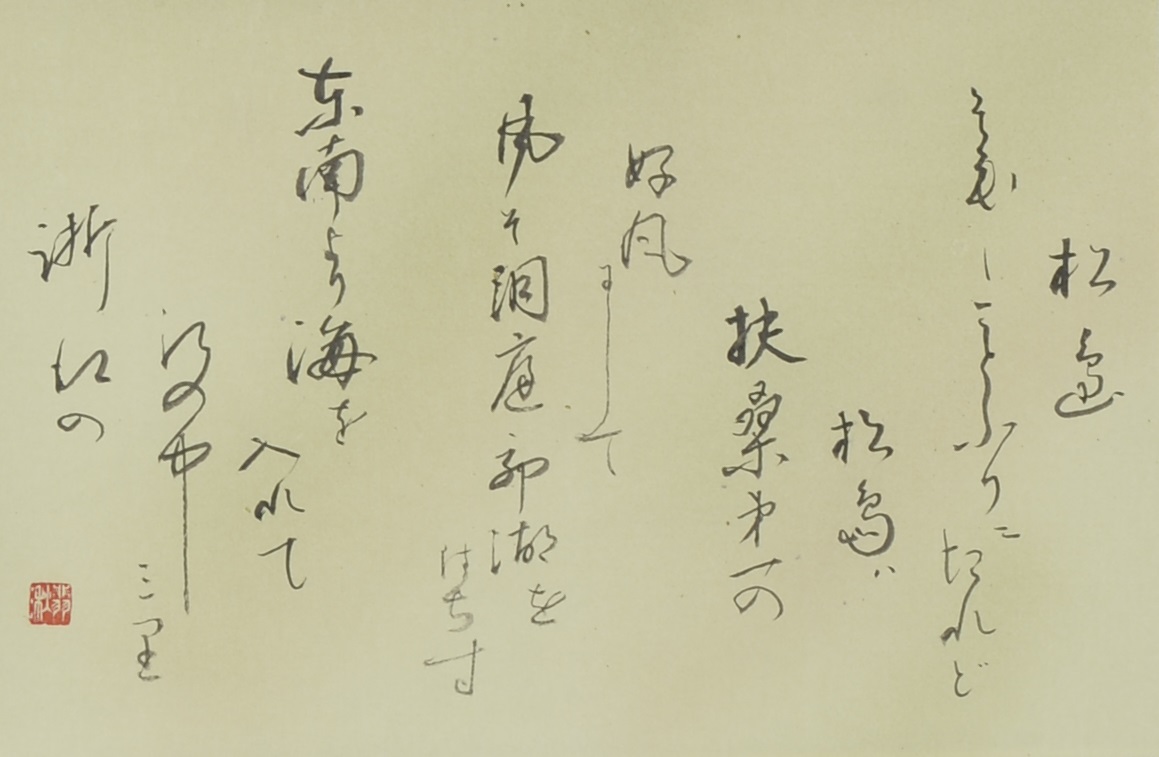 松島
そもことふりにたれど
松島ハ
扶桑第一の
好風にして
凡そ洞庭西湖を
はちす
東南より海を
入れて
江の中
三里
浙江の